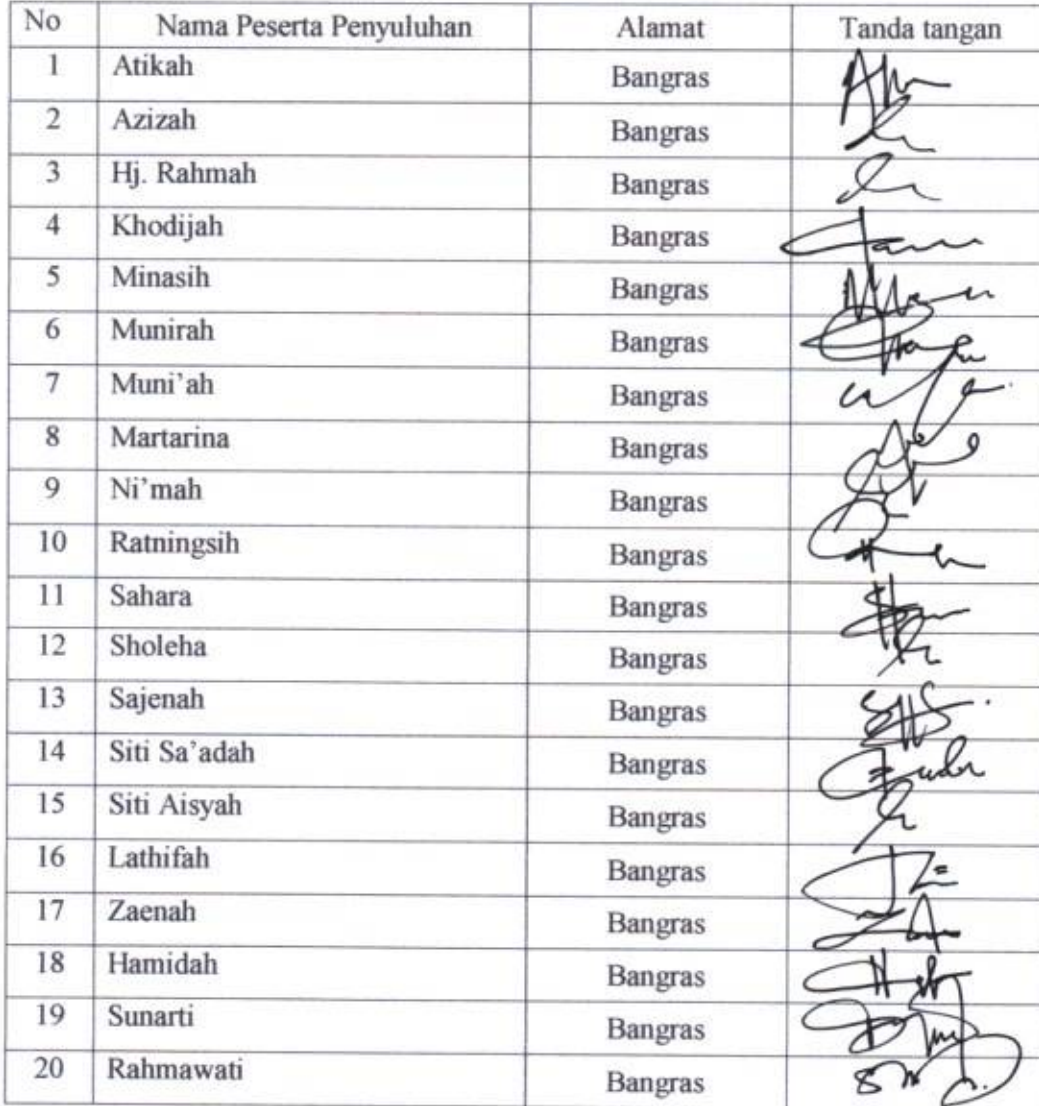 No Nama Peserta Penyuluhan Alamat Tanda tangan
1 Atikah Bangras
2 Azizah Bangras
3 Hj. Rahmah Bangras
4 Khodijah Bangras
5 Minasih Bangras
6 Munirah Bangras
7 Muni'ah Bangras
8 Martarina Bangras
9 Ni'mah Bangras
10 Ratningsih Bangras
11 Sahara Bangras
12 Sholeha Bangras
13 Sajenah Bangras
14 Siti Sa'adah Bangras
15 Siti Aisyah Bangras
16 Lathifah Bangras
17 Zaenah Bangras
18 Hamidah Bangras
19 Sunarti Bangras
20 Rahmawati Bangras